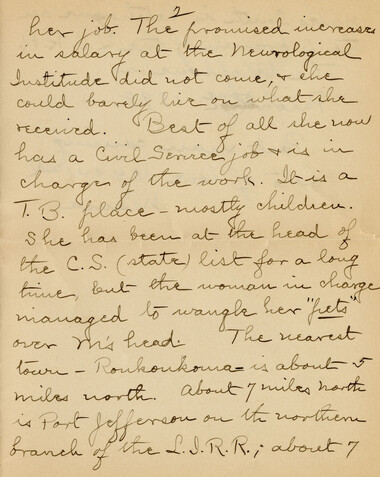 2
her job. The promised increases
in salary at the Neurological
Institude did not come, & she
could barely live on what she
received. Best of all she now
has a Civil Service job & is in
charge of the work. It is a
T. B. place - mostly children.
She has been at the head of
the C.S. (state) list for a long
time, but the woman in charge
managed to wangle her "pets"
over M's head. The nearest
town - Ronkonkoma - is about 5
miles north. About 7 miles north
is Port Jefferson on th northern
branch of the L.I.R.R.; about 7